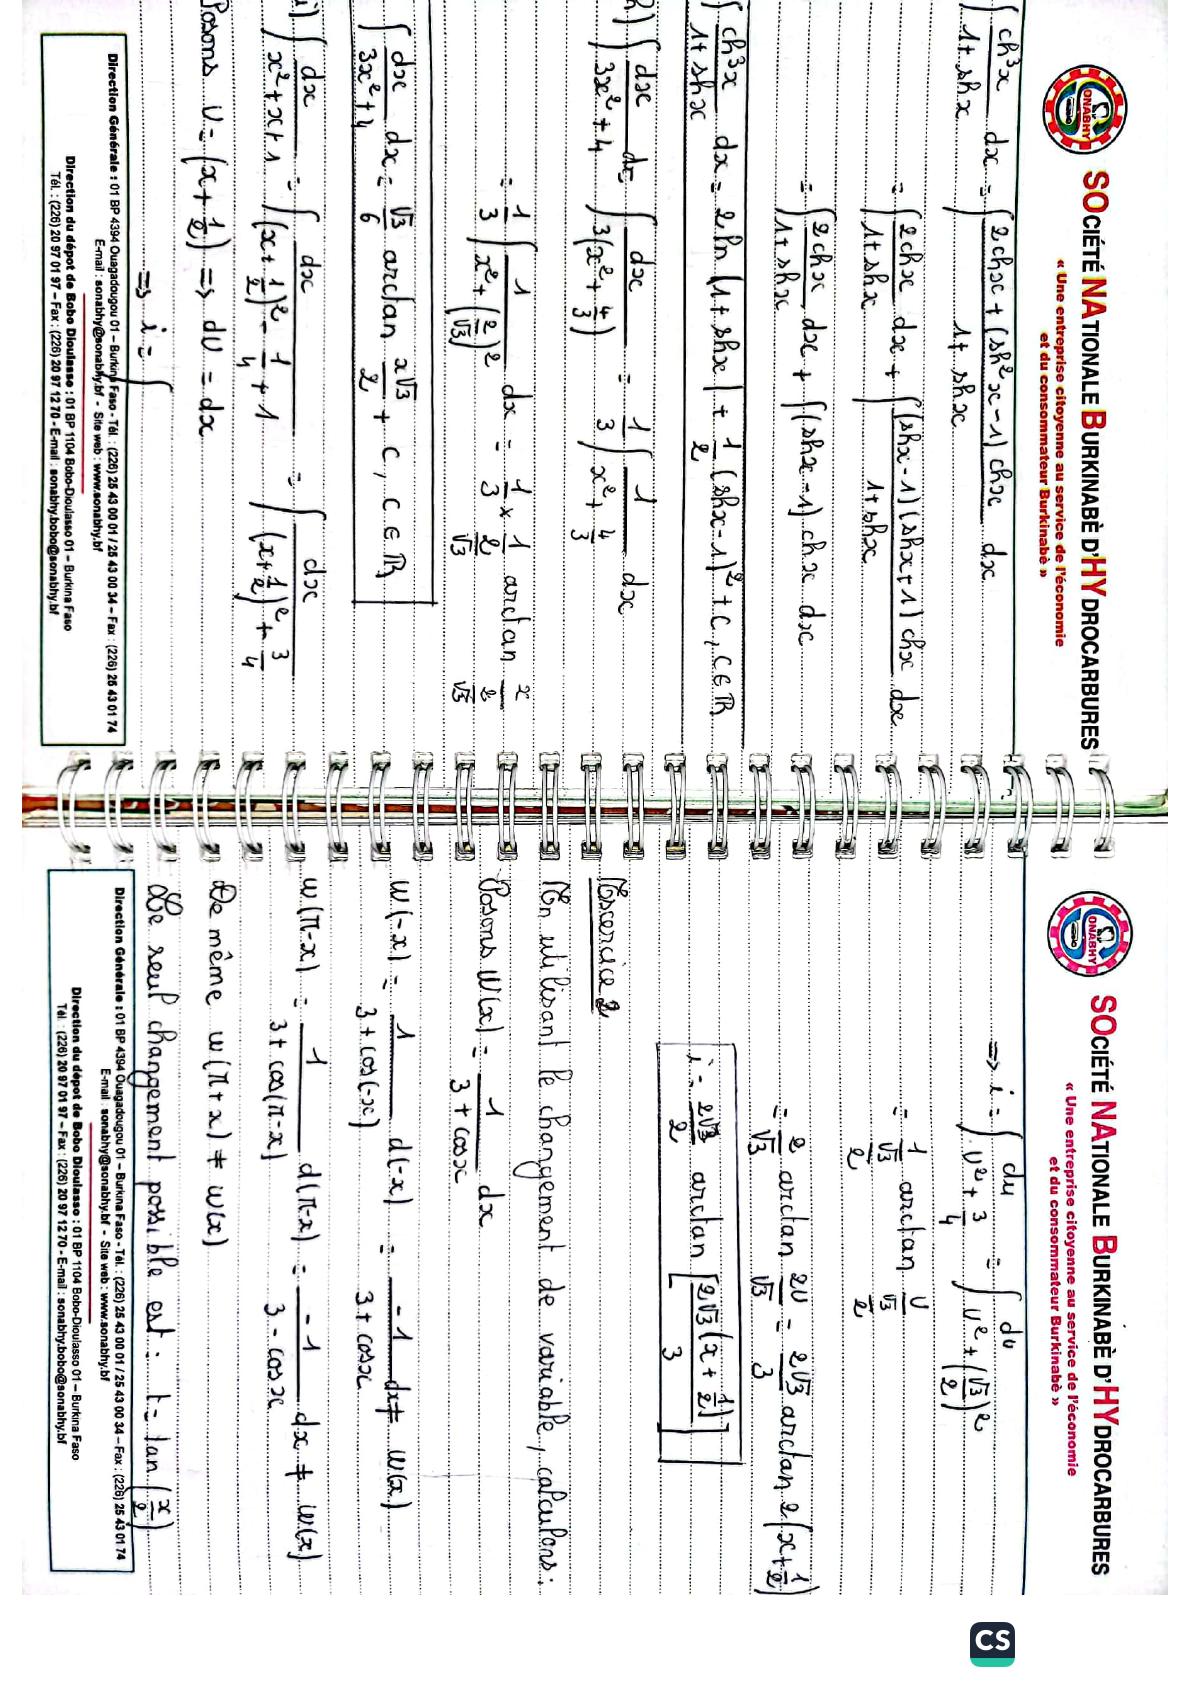 SOCIÉTÉ NATIONALE BURKINABÈ D'HYDROCARBURES
« Une entreprise citoyenne au service de l'économie
et du consommateur Burkinabè »
SONABHY
∫ ch³x / (1+shx) dx = ∫ (2chx + (sh²x-1) chx) / (1+shx) dx
= ∫ 2chx / (1+shx) dx + ∫ (shx-1)(shx+1) chx / (1+shx) dx
= ∫ 2chx / (1+shx) dx + ∫ (shx-1) chx dx
∫ ch³x / (1+shx) dx = 2ln |1+shx| + 1/2 (shx-1)² + C, C ∈ ℝ
h) ∫ dx / (3x²+4) dx = ∫ dx / 3(x²+4/3) = 1/3 ∫ 1 / (x²+4/3) dx
= 1/3 ∫ 1 / (x²+(2/√3)²) dx = 1/3 × 1/(2/√3) arctan x/(2/√3)
∫ dx / (3x²+4) dx = √3/6 arctan x√3/2 + C, C ∈ ℝ
i) ∫ dx / (x²+x+1) = ∫ dx / ((x+1/2)² - 1/4 + 1) = ∫ dx / ((x+1/2)² + 3/4)
Posons U = (x+1/2) => dU = dx
=> i = ∫
Direction Générale : 01 BP 4394 Ouagadougou 01 – Burkina Faso - Tél. : (226) 25 43 00 01 / 25 43 00 34 – Fax : (226) 25 43 01 74
E-mail : sonabhy@sonabhy.bf - Site web : www.sonabhy.bf
Direction du dépot de Bobo Dioulasso : 01 BP 1104 Bobo-Dioulasso 01 – Burkina Faso
Tél. : (226) 20 97 01 97 – Fax : (226) 20 97 12 70 - E-mail : sonabhy.bobo@sonabhy.bf
SOCIÉTÉ NATIONALE BURKINABÈ D'HYDROCARBURES
« Une entreprise citoyenne au service de l'économie
et du consommateur Burkinabè »
SONABHY
=> i = ∫ du / (U²+3/4) = ∫ du / (U²+(√3/2)²)
= 1/(√3/2) arctan U/(√3/2)
= 2/√3 arctan 2U/√3 = 2√3/3 arctan 2(x+1/2)
i = 2√3/2 arctan [2√3(x+1/2)/3]
Exercice 2
En utilisant le changement de variable, calculons :
Posons W(x) = 1/(3+cosx) dx
W(-x) = 1/(3+cos(-x)) d(-x) = -1/(3+cosx) dx ≠ W(x)
W(π-x) = 1/(3+cos(π-x)) d(π-x) = -1/(3-cosx) dx ≠ W(x)
De même W(π+x) ≠ W(x)
Le seul changement possible est : t = tan(x/2)
Direction Générale : 01 BP 4394 Ouagadougou 01 – Burkina Faso - Tél. : (226) 25 43 00 01 / 25 43 00 34 – Fax : (226) 25 43 01 74
E-mail : sonabhy@sonabhy.bf - Site web : www.sonabhy.bf
Direction du dépot de Bobo Dioulasso : 01 BP 1104 Bobo-Dioulasso 01 – Burkina Faso
Tél. : (226) 20 97 01 97 – Fax : (226) 20 97 12 70 - E-mail : sonabhy.bobo@sonabhy.bf
CS